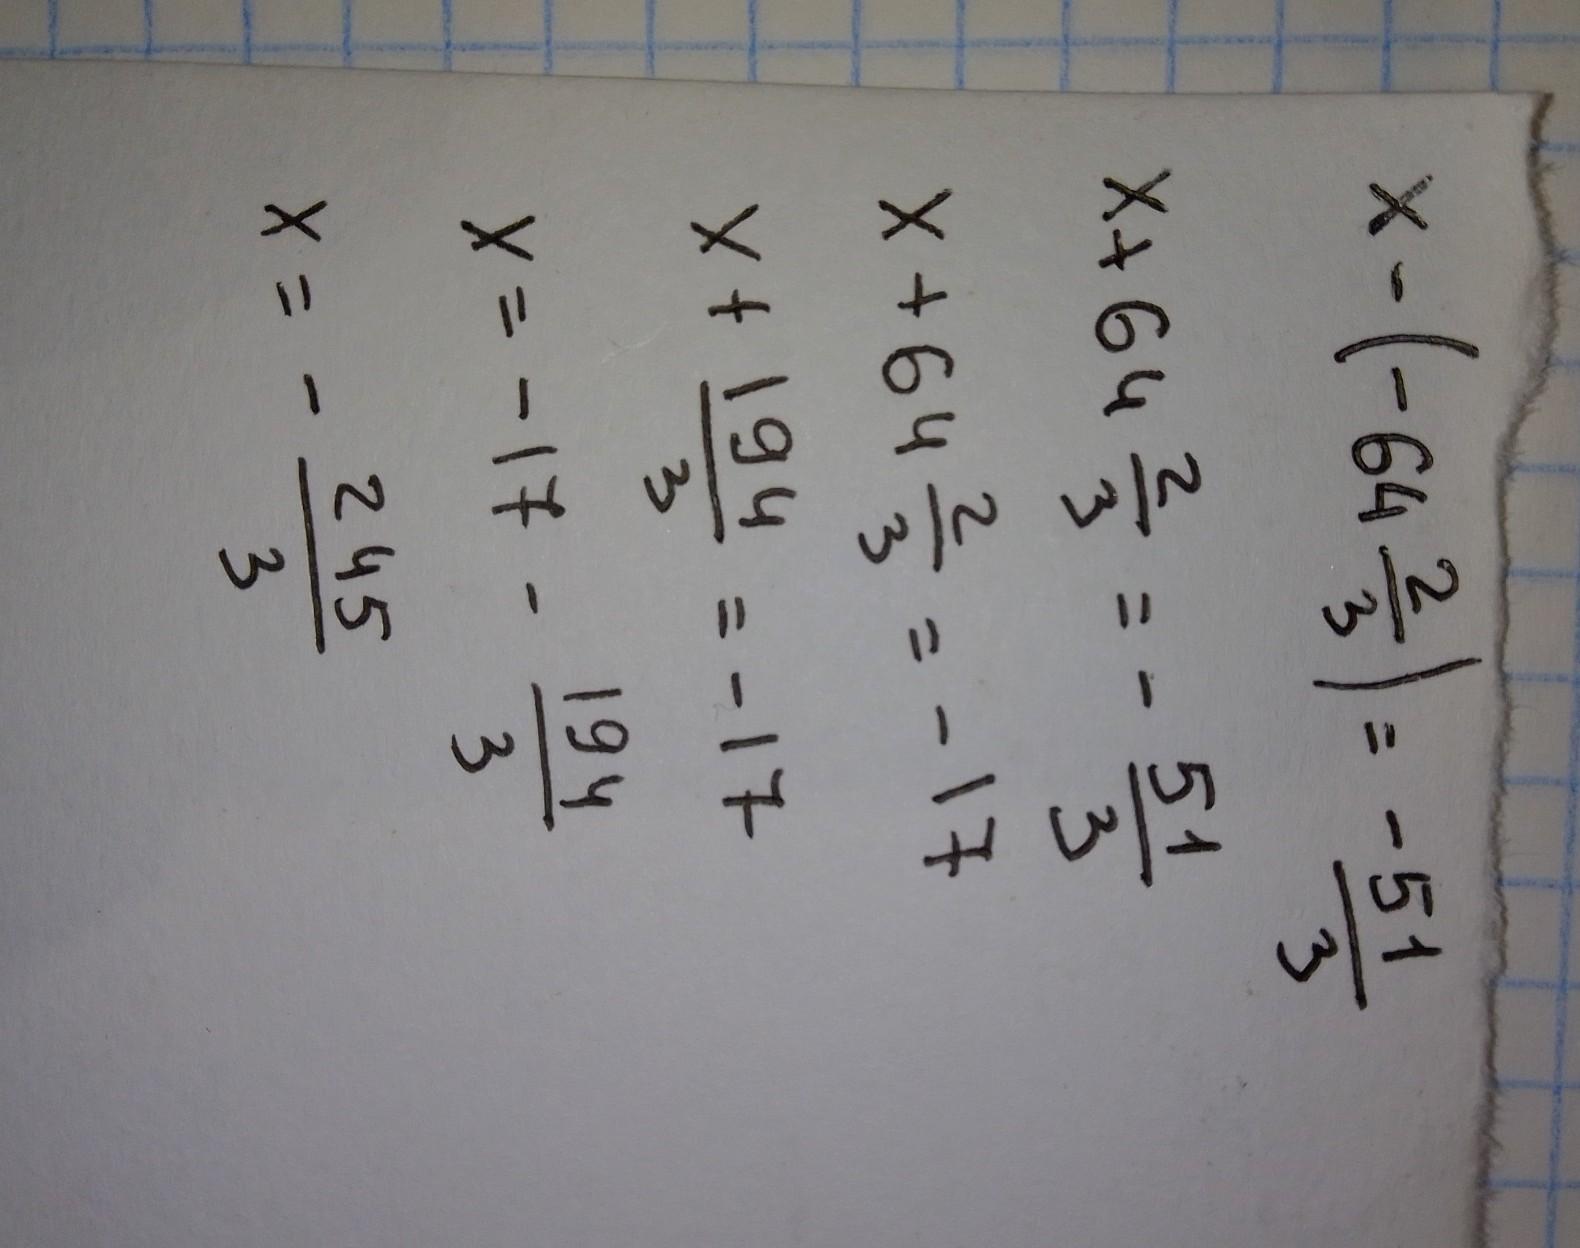 x - (-64 2/3) = - 51/3
x + 64 2/3 = - 51/3
x + 64 2/3 = - 17
x + 194/3 = - 17
x = - 17 - 194/3
x = - 245/3